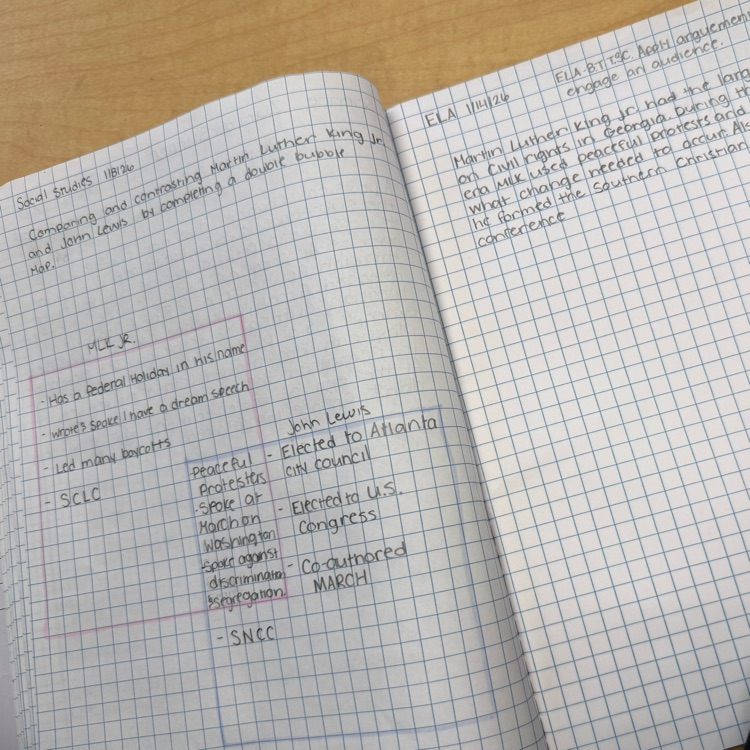 Social Studies 1/8/26
Comparing and contrasting Martin Luther King Jr.
and John Lewis by completing a double bubble
Map.
MLK JR.
- Has a federal Holiday in his name
- wrote & spoke I have a dream speech
- Led many boycotts
- SCLC
Peaceful
Protesters
- Spoke at
March on
Washington
- Spoke against
discrimination
& segregation.
John Lewis
- Elected to Atlanta
city council
- Elected to U.S.
Congress
- Co-authored
MARCH
- SNCC
ELA 1/14/26
ELA-BT Apply
engage an audience.
Martin Luther King Jr. had the
on civil rights in Georgia. During
era MLK used peaceful protests and
what change needed to occur.
he formed the Southern Christian
conference